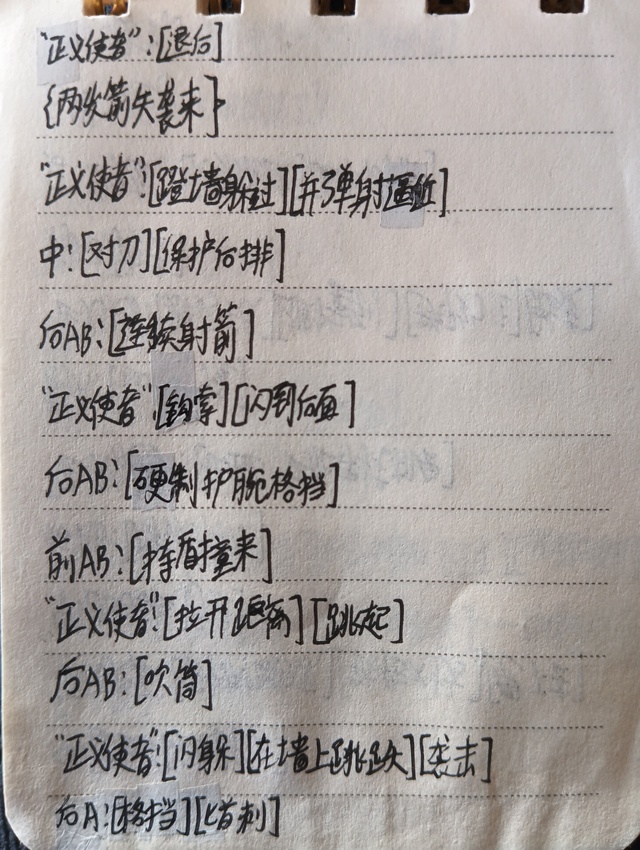 "正义使者":[退后]
{两发箭矢袭来}
"正义使者":[蹬墙躲过][并弹射逼近]
中:[对刀][保护后排]
后AB:[连续射箭]
"正义使者":[钩索][闪到后面]
后AB:[硬制护腕格挡]
前AB:[持盾撞来]
"正义使者":[拉开距离][跳起]
后AB:[吹筒]
"正义使者":[闪躲][在墙上跳跃][袭击]
后A:[格挡][匕首刺]